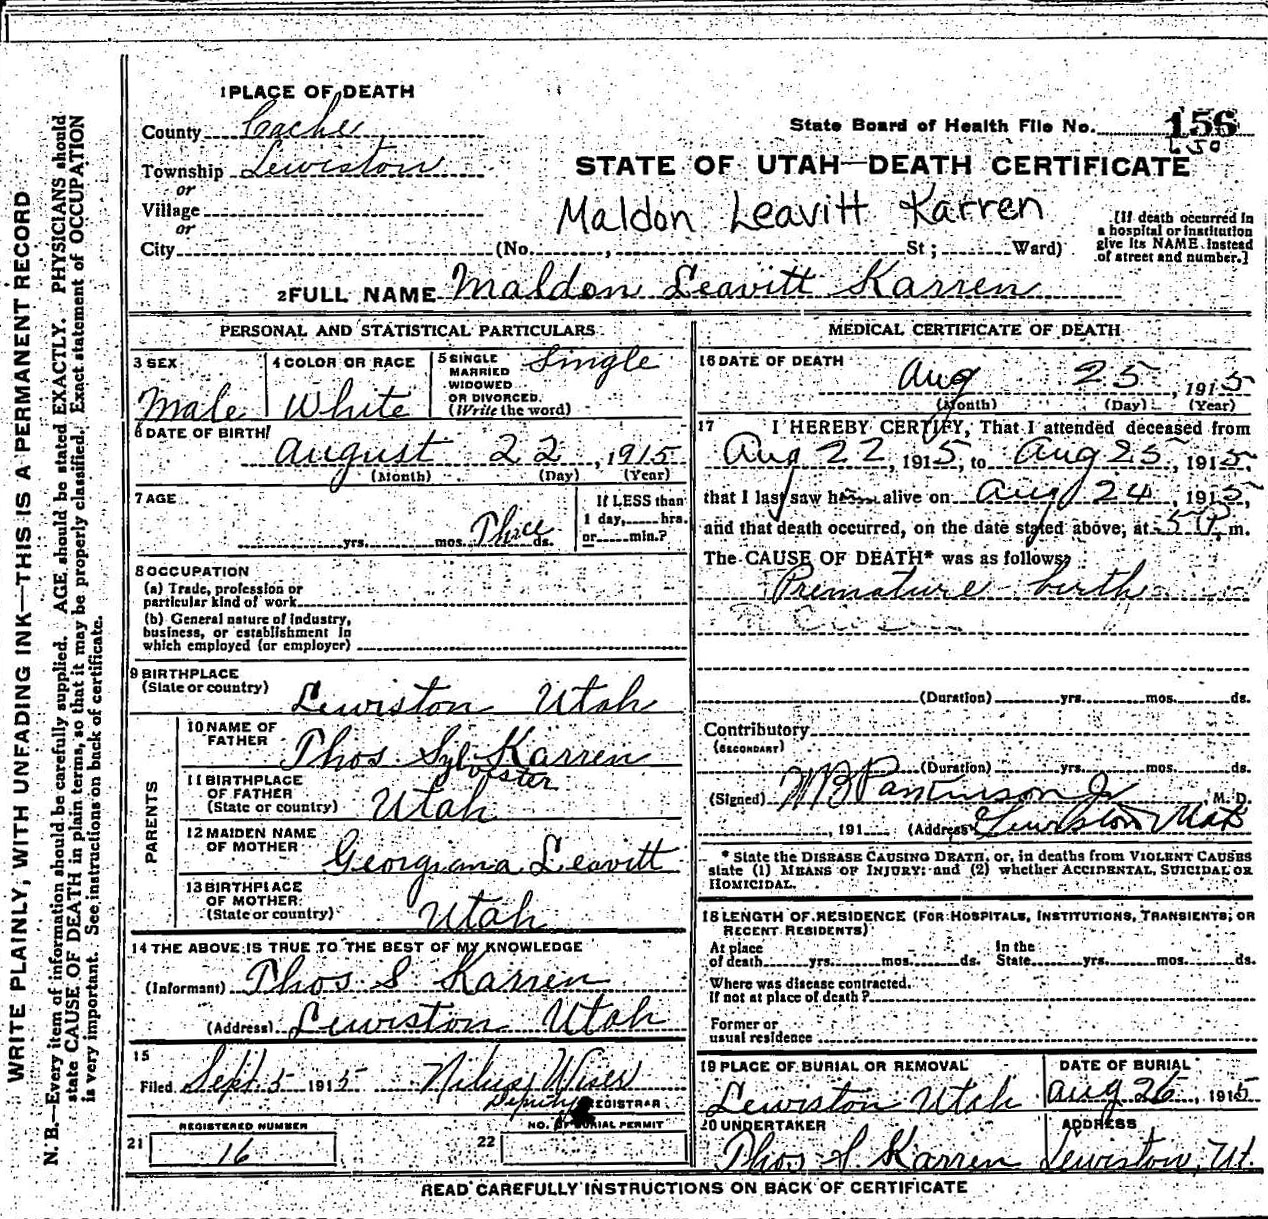 WRITE PLAINLY, WITH UNFADING INK—THIS IS A PERMANENT RECORD
N. B.—Every item of information should be carefully supplied. AGE should be stated EXACTLY. PHYSICIANS should
state CAUSE OF DEATH in plain terms, so that it may be properly classified. Exact statement of OCCUPATION
is very important. See instructions on back of certificate.
1 PLACE OF DEATH
County Cache
Township Lewiston
or
Village
or
City
State Board of Health File No. 156
STATE OF UTAH—DEATH CERTIFICATE
Maldon Leavitt Karren
(No. , St ; Ward)
[If death occurred in
a hospital or institution
give its NAME instead
of street and number.]
2 FULL NAME Maldon Leavitt Karren
PERSONAL AND STATISTICAL PARTICULARS
3 SEX
Male
4 COLOR OR RACE
White
5 SINGLE
MARRIED
WIDOWED
OR DIVORCED.
(Write the word)
Single
6 DATE OF BIRTH
August 22, 1915
(Month) (Day) (Year)
7 AGE
yrs. mos. Three ds.
If LESS than
1 day, hrs.
or min.?
8 OCCUPATION
(a) Trade, profession or
particular kind of work
(b) General nature of industry,
business, or establishment in
which employed (or employer)
9 BIRTHPLACE
(State or country)
Lewiston Utah
PARENTS
10 NAME OF
FATHER
Thos Sylvester Karren
11 BIRTHPLACE
OF FATHER
(State or country)
Utah
12 MAIDEN NAME
OF MOTHER
Georgiana Leavitt
13 BIRTHPLACE
OF MOTHER
(State or country)
Utah
14 THE ABOVE IS TRUE TO THE BEST OF MY KNOWLEDGE
(Informant) Thos S Karren
(Address) Lewiston Utah
15
Filed Sept. 5 1915 Wiser
Deputy REGISTRAR
REGISTERED NUMBER
21 16
NO. OF BURIAL PERMIT
22
MEDICAL CERTIFICATE OF DEATH
16 DATE OF DEATH
Aug 25, 1915
(Month) (Day) (Year)
17 I HEREBY CERTIFY, That I attended deceased from
Aug 22, 1915, to Aug 25, 1915,
that I last saw him alive on Aug 24, 1915,
and that death occurred, on the date stated above, at 5 P. m.
The CAUSE OF DEATH* was as follows:
Premature birth
(Duration) yrs. mos. ds.
Contributory
(SECONDARY)
(Duration) yrs. mos. ds.
(Signed) WB Parkinson Jr M. D.
, 191 (Address) Lewiston Utah
* State the DISEASE CAUSING DEATH, or, in deaths from VIOLENT CAUSES
state (1) MEANS OF INJURY; and (2) whether ACCIDENTAL, SUICIDAL OR
HOMICIDAL.
18 LENGTH OF RESIDENCE (FOR HOSPITALS, INSTITUTIONS, TRANSIENTS, OR
RECENT RESIDENTS)
At place
of death yrs. mos. ds.
In the
State yrs. mos. ds.
Where was disease contracted.
if not at place of death?
Former or
usual residence
19 PLACE OF BURIAL OR REMOVAL
Lewiston Utah
DATE OF BURIAL
Aug 26, 1915
20 UNDERTAKER
Thos S. Karren
ADDRESS
Lewiston, Ut.
READ CAREFULLY INSTRUCTIONS ON BACK OF CERTIFICATE